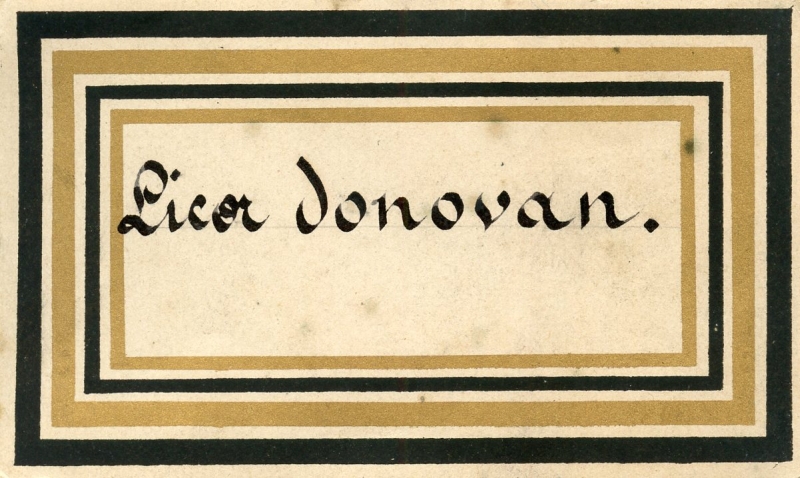 Licor donovan.